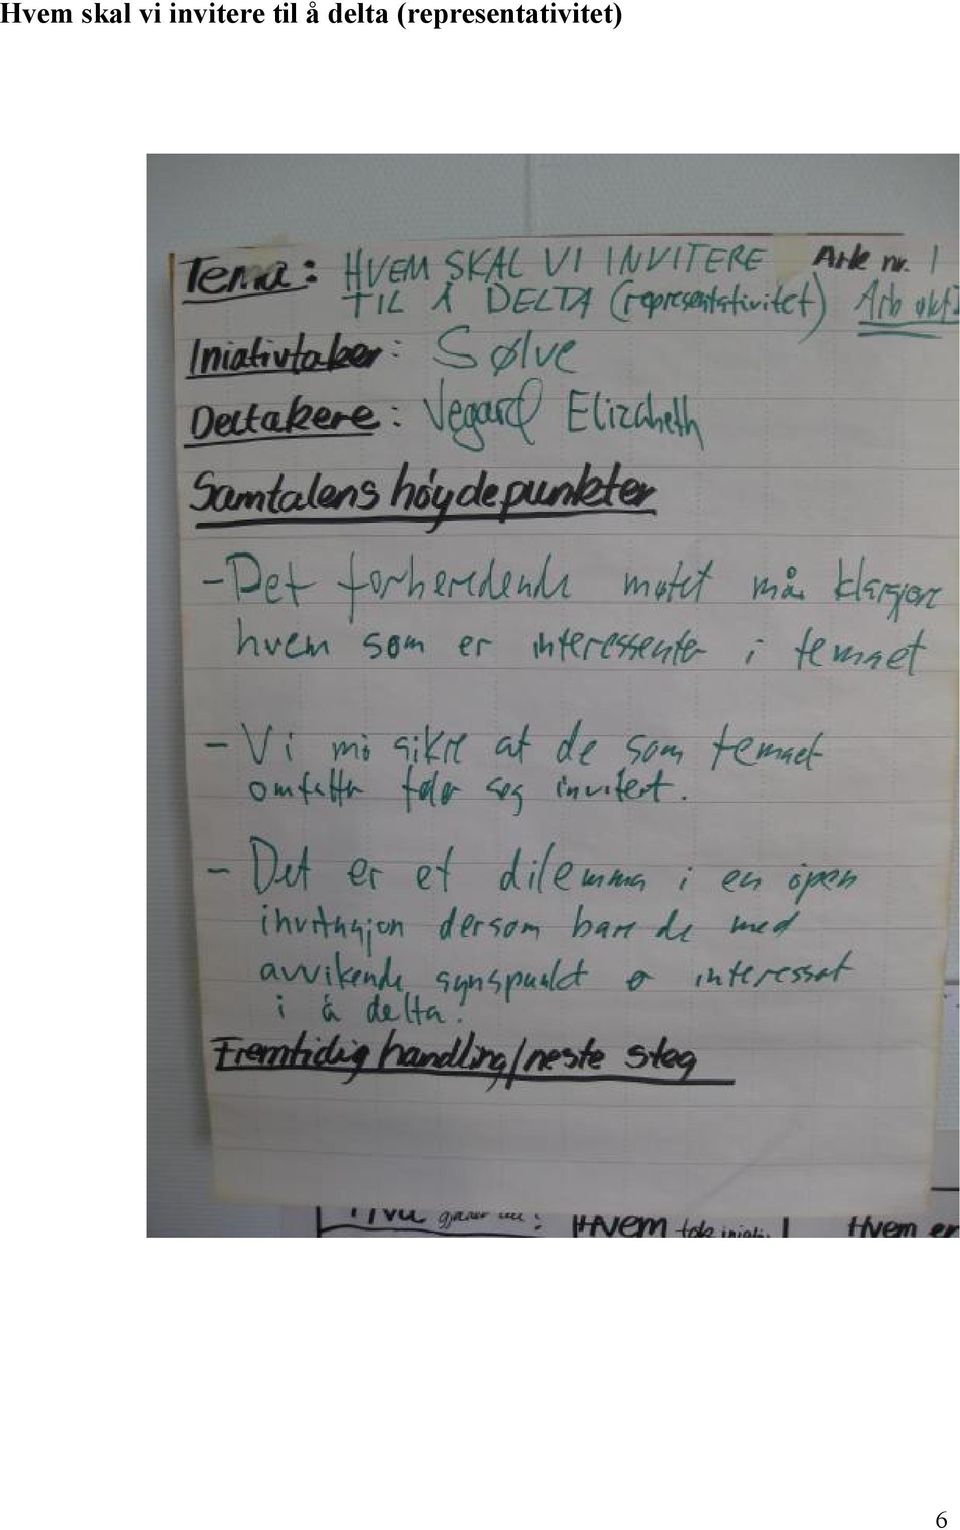 Hvem skal vi invitere til å delta (representativitet)
Tema: HVEM SKAL VI INVITERE Ark nr. 1
TIL Å DELTA (representativitet) Arb økt
Iniativtaker: Sølve
Deltakere: Vegard Elizabeth
Samtalens høydepunkter
- Det forberedende møtet må klargjøre
hvem som er interessenter i temaet
- Vi må sikre at de som temaet
omfatter føler seg invitert.
- Det er et dilemma i en åpen
invitasjon dersom bare de med
avvikende synspunkt er interessat
i å delta.
Fremtidig handling/neste steg
Hvem tok Hvem er
6